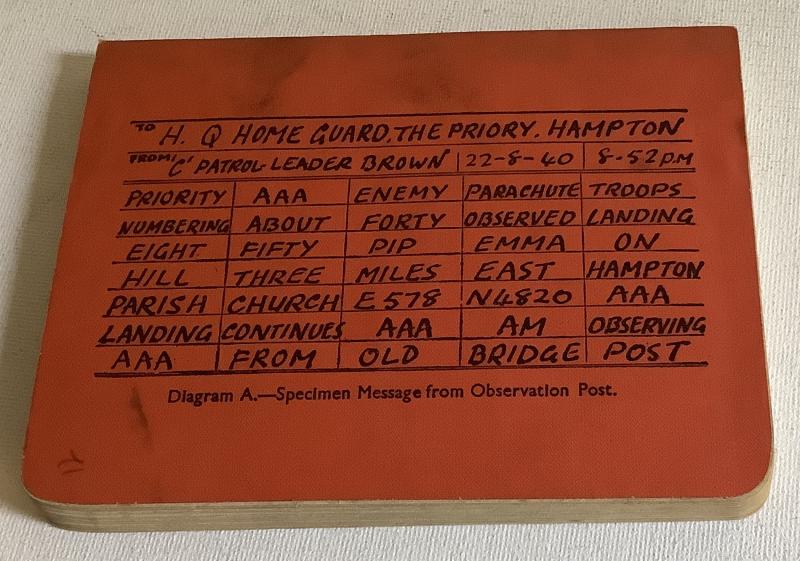 TO H. Q HOME GUARD. THE PRIORY. HAMPTON
FROM 'C' PATROL-LEADER BROWN 22-8-40 8-52 P.M
PRIORITY AAA ENEMY PARACHUTE TROOPS
NUMBERING ABOUT FORTY OBSERVED LANDING
EIGHT FIFTY PIP EMMA ON
HILL THREE MILES EAST HAMPTON
PARISH CHURCH E578 N4820 AAA
LANDING CONTINUES AAA AM OBSERVING
AAA FROM OLD BRIDGE POST
Diagram A.—Specimen Message from Observation Post.